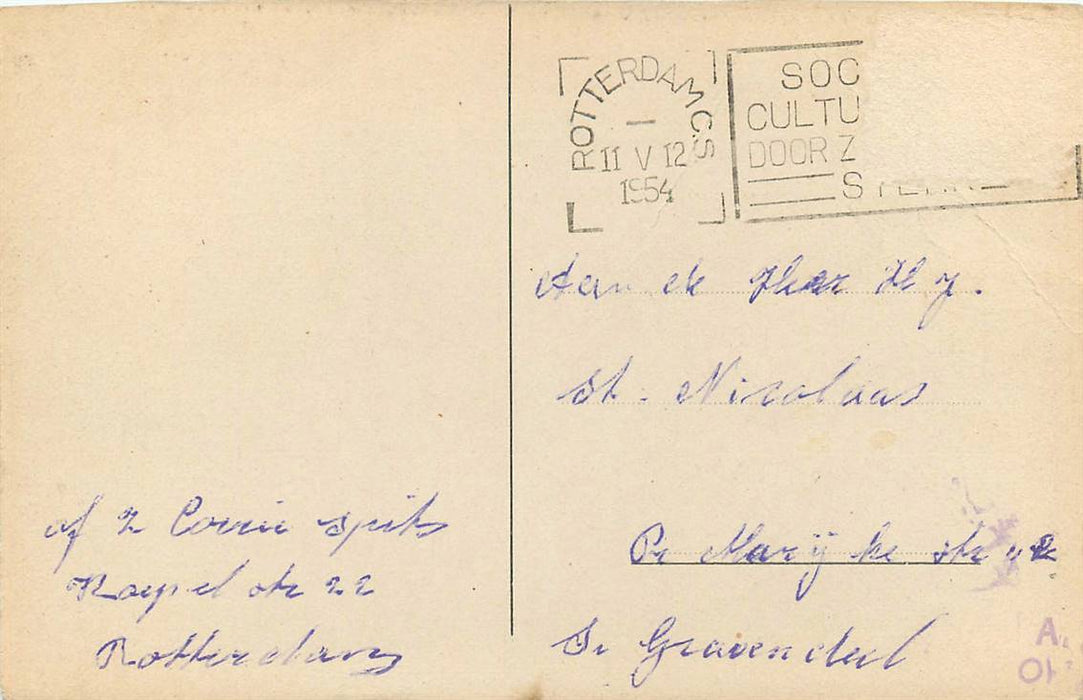 ROTTERDAM C.S
11 V 12
1954
SOC
CULTU
DOOR Z
Aan de Heer H J.
St. Nicolaas
Pr Marijke str
S. Gravendeel
af z Corrie Spits
str 22
Rotterdam